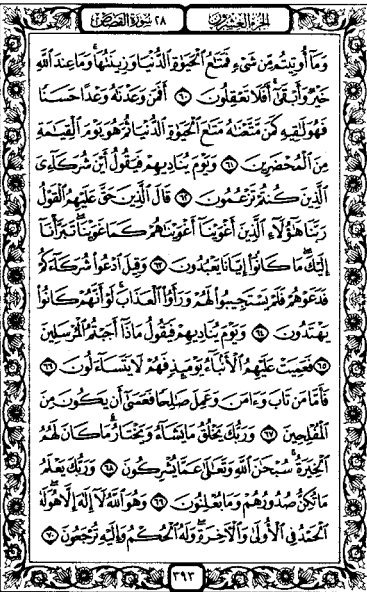 الجزء العشرون ٢٨ سورة القصص
وَمَآ أُوتِيتُم مِّن شَىْءٍ فَمَتَٰعُ ٱلْحَيَوٰةِ ٱلدُّنْيَا وَزِينَتُهَا ۚ وَمَا عِندَ ٱللَّهِ
خَيْرٌ وَأَبْقَىٰٓ ۚ أَفَلَا تَعْقِلُونَ ٦٠ أَفَمَن وَعَدْنَٰهُ وَعْدًا حَسَنًا
فَهُوَ لَٰقِيهِ كَمَن مَّتَّعْنَٰهُ مَتَٰعَ ٱلْحَيَوٰةِ ٱلدُّنْيَا ثُمَّ هُوَ يَوْمَ ٱلْقِيَٰمَةِ
مِنَ ٱلْمُحْضَرِينَ ٦١ وَيَوْمَ يُنَادِيهِمْ فَيَقُولُ أَيْنَ شُرَكَآءِىَ
ٱلَّذِينَ كُنتُمْ تَزْعُمُونَ ٦٢ قَالَ ٱلَّذِينَ حَقَّ عَلَيْهِمُ ٱلْقَوْلُ
رَبَّنَا هَٰٓؤُلَآءِ ٱلَّذِينَ أَغْوَيْنَآ أَغْوَيْنَٰهُمْ كَمَا غَوَيْنَا ۖ تَبَرَّأْنَآ
إِلَيْكَ ۖ مَا كَانُوٓا۟ إِيَّانَا يَعْبُدُونَ ٦٣ وَقِيلَ ٱدْعُوا۟ شُرَكَآءَكُمْ
فَدَعَوْهُمْ فَلَمْ يَسْتَجِيبُوا۟ لَهُمْ وَرَأَوُا۟ ٱلْعَذَابَ ۚ لَوْ أَنَّهُمْ كَانُوا۟
يَهْتَدُونَ ٦٤ وَيَوْمَ يُنَادِيهِمْ فَيَقُولُ مَاذَآ أَجَبْتُمُ ٱلْمُرْسَلِينَ
٦٥ فَعَمِيَتْ عَلَيْهِمُ ٱلْأَنۢبَآءُ يَوْمَئِذٍ فَهُمْ لَا يَتَسَآءَلُونَ ٦٦
فَأَمَّا مَن تَابَ وَءَامَنَ وَعَمِلَ صَٰلِحًا فَعَسَىٰٓ أَن يَكُونَ مِنَ
ٱلْمُفْلِحِينَ ٦٧ وَرَبُّكَ يَخْلُقُ مَا يَشَآءُ وَيَخْتَارُ ۗ مَا كَانَ لَهُمُ
ٱلْخِيَرَةُ ۚ سُبْحَٰنَ ٱللَّهِ وَتَعَٰلَىٰ عَمَّا يُشْرِكُونَ ٦٨ وَرَبُّكَ يَعْلَمُ
مَا تُكِنُّ صُدُورُهُمْ وَمَا يُعْلِنُونَ ٦٩ وَهُوَ ٱللَّهُ لَآ إِلَٰهَ إِلَّا هُوَ ۖ لَهُ
ٱلْحَمْدُ فِى ٱلْأُولَىٰ وَٱلْءَاخِرَةِ ۖ وَلَهُ ٱلْحُكْمُ وَإِلَيْهِ تُرْجَعُونَ ٧٠
٣٩٣